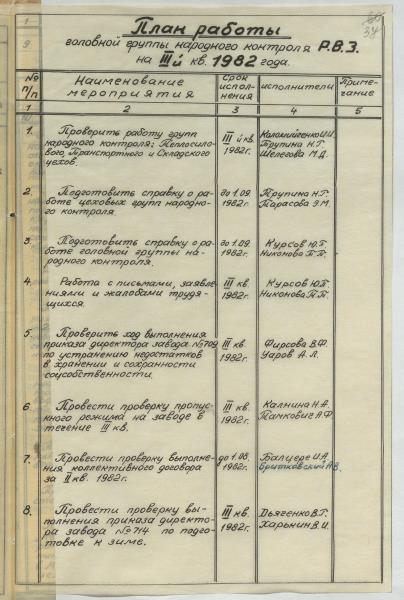 План работы
головной группы народного контроля Р.В.З.
на III й кв. 1982 года.
№ п/п Наименование мероприятия Срок исполнения исполнители Примечание
1 2 3 4 5
1. Проверить работу групп III й кв. Коломийченко И.И.
народного контроля: Теплосило- 1982г. Трупина Н.Г.
вого, Транспортного и Складского Шелегова М.Д.
цехов.
2. Подготовить справку о ра- до 1.09. Трупина Н.Г.
боте цеховых групп народно- 1982г. Тарасова Э.М.
го контроля.
3. Подготовить справку о ра- до 1.09. Курсов Ю.Г.
боте головной группы на- 1982г. Никонова П.П.
родного контроля.
4. Работа с письмами, заявле- III кв. Курсов Ю.Г.
ниями и жалобами трудя- 1982г. Никонова П.П.
щихся.
5. Проверить ход выполнения
приказа директора завода №709 III кв. Фирсова В.Ф.
по устранению недостатков 1982г. Уаров А.Л.
в хранении и сохранности
соцсобственности.
6. Провести проверку пропуск- III кв. Калнина Н.А.
ного режима на заводе в 1982г. Панкович А.Ф.
течение III кв.
7. Провести проверку выполне- до 1.08. Балцере И.А.
ния коллективного договора 1982г. Бритковский А.В.
за II кв. 1982г.
8. Провести проверку вы- III кв. Дьяченко В.Г.
полнения приказа директо- 1982г. Харькин В.И.
ра завода №714 по подго-
товке к зиме.